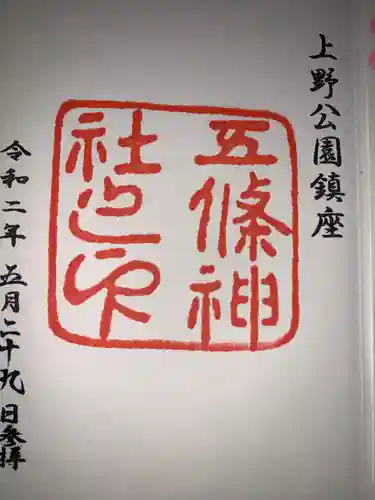 上野公園鎮座
五條神
社之印
令和二年五月二十九日参拝